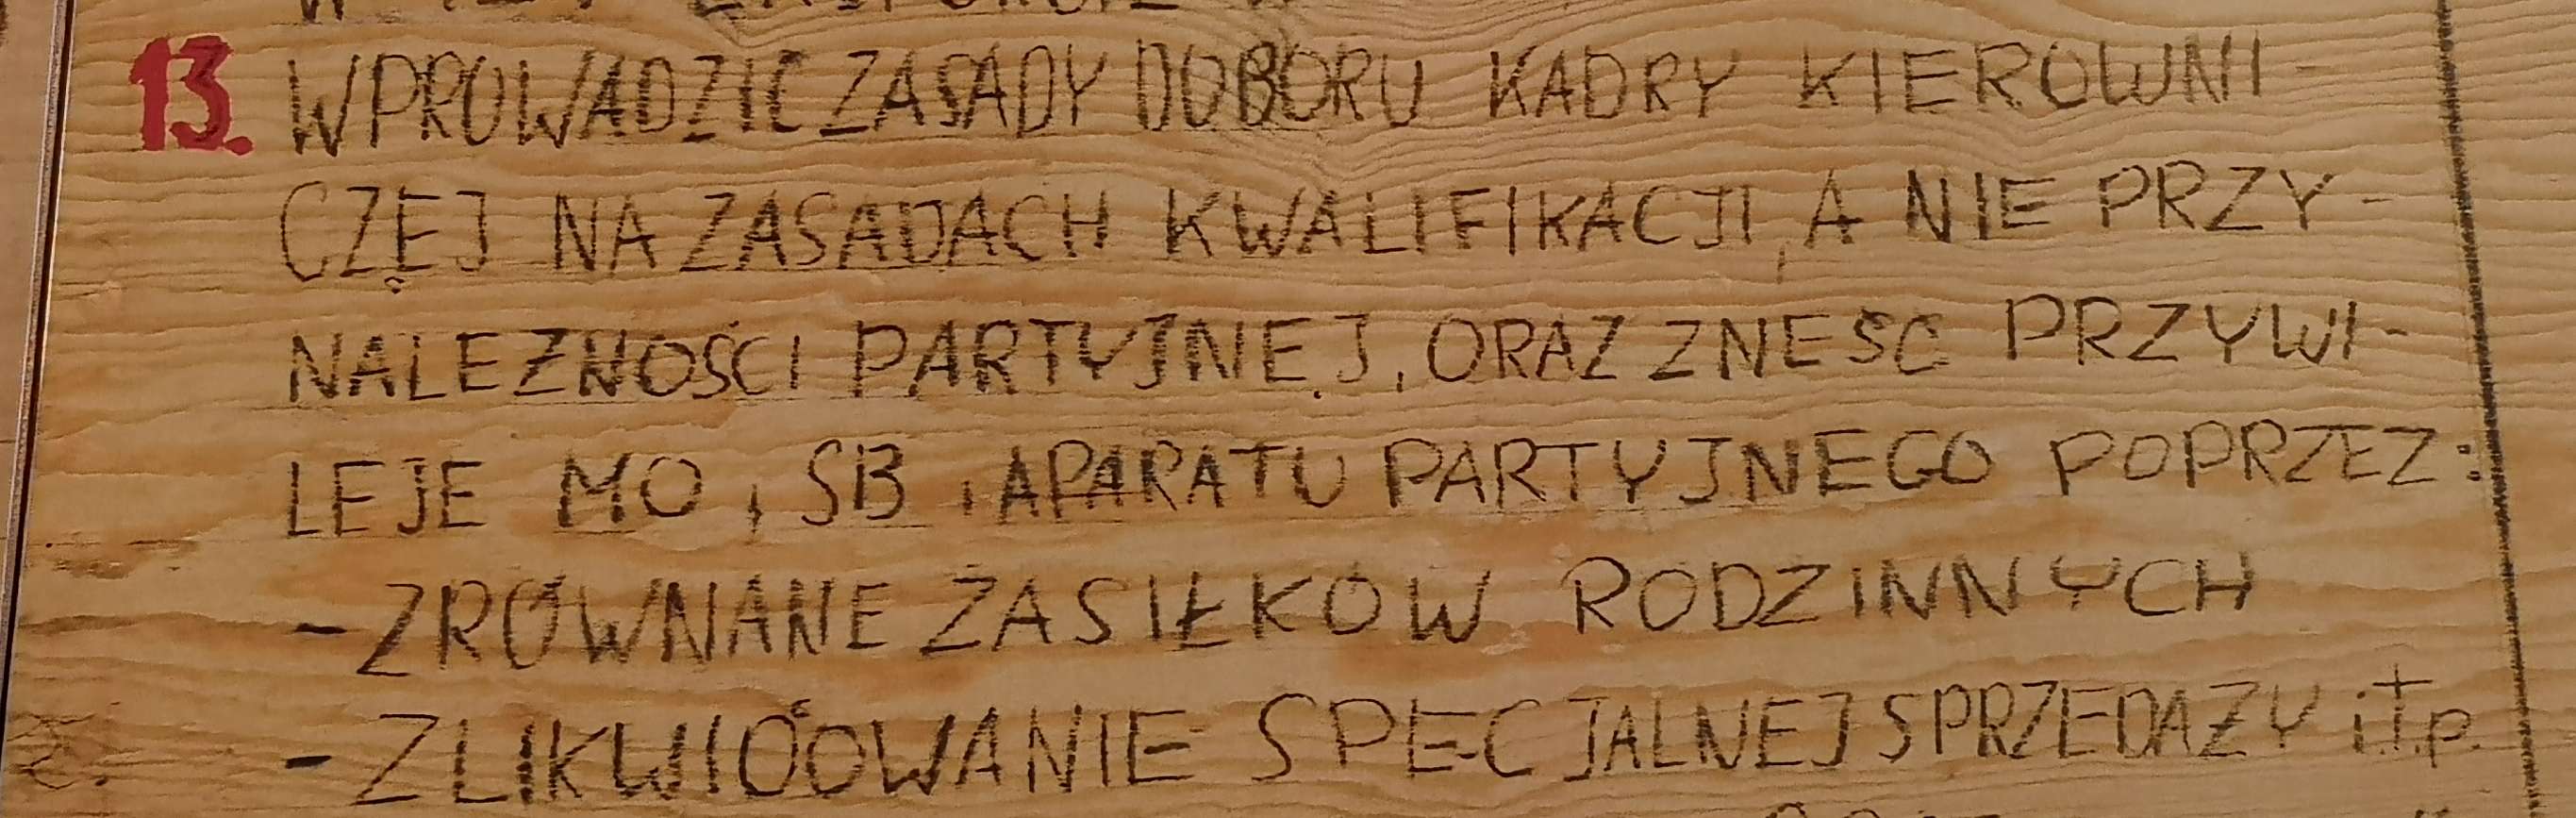 13. WPROWADZIĆ ZASADY DOBORU KADRY KIEROWNI-
CZEJ NA ZASADACH KWALIFIKACJI, A NIE PRZY-
NALEŻNOŚCI PARTYJNEJ, ORAZ ZNEŚĆ PRZYWI-
LEJE MO, SB, APARATU PARTYJNEGO POPRZEZ:
- ZRÓWNANE ZASIŁKÓW RODZINNYCH
- ZLIKWIDOWANIE SPECJALNEJ SPRZEDAŻY i.T.p.